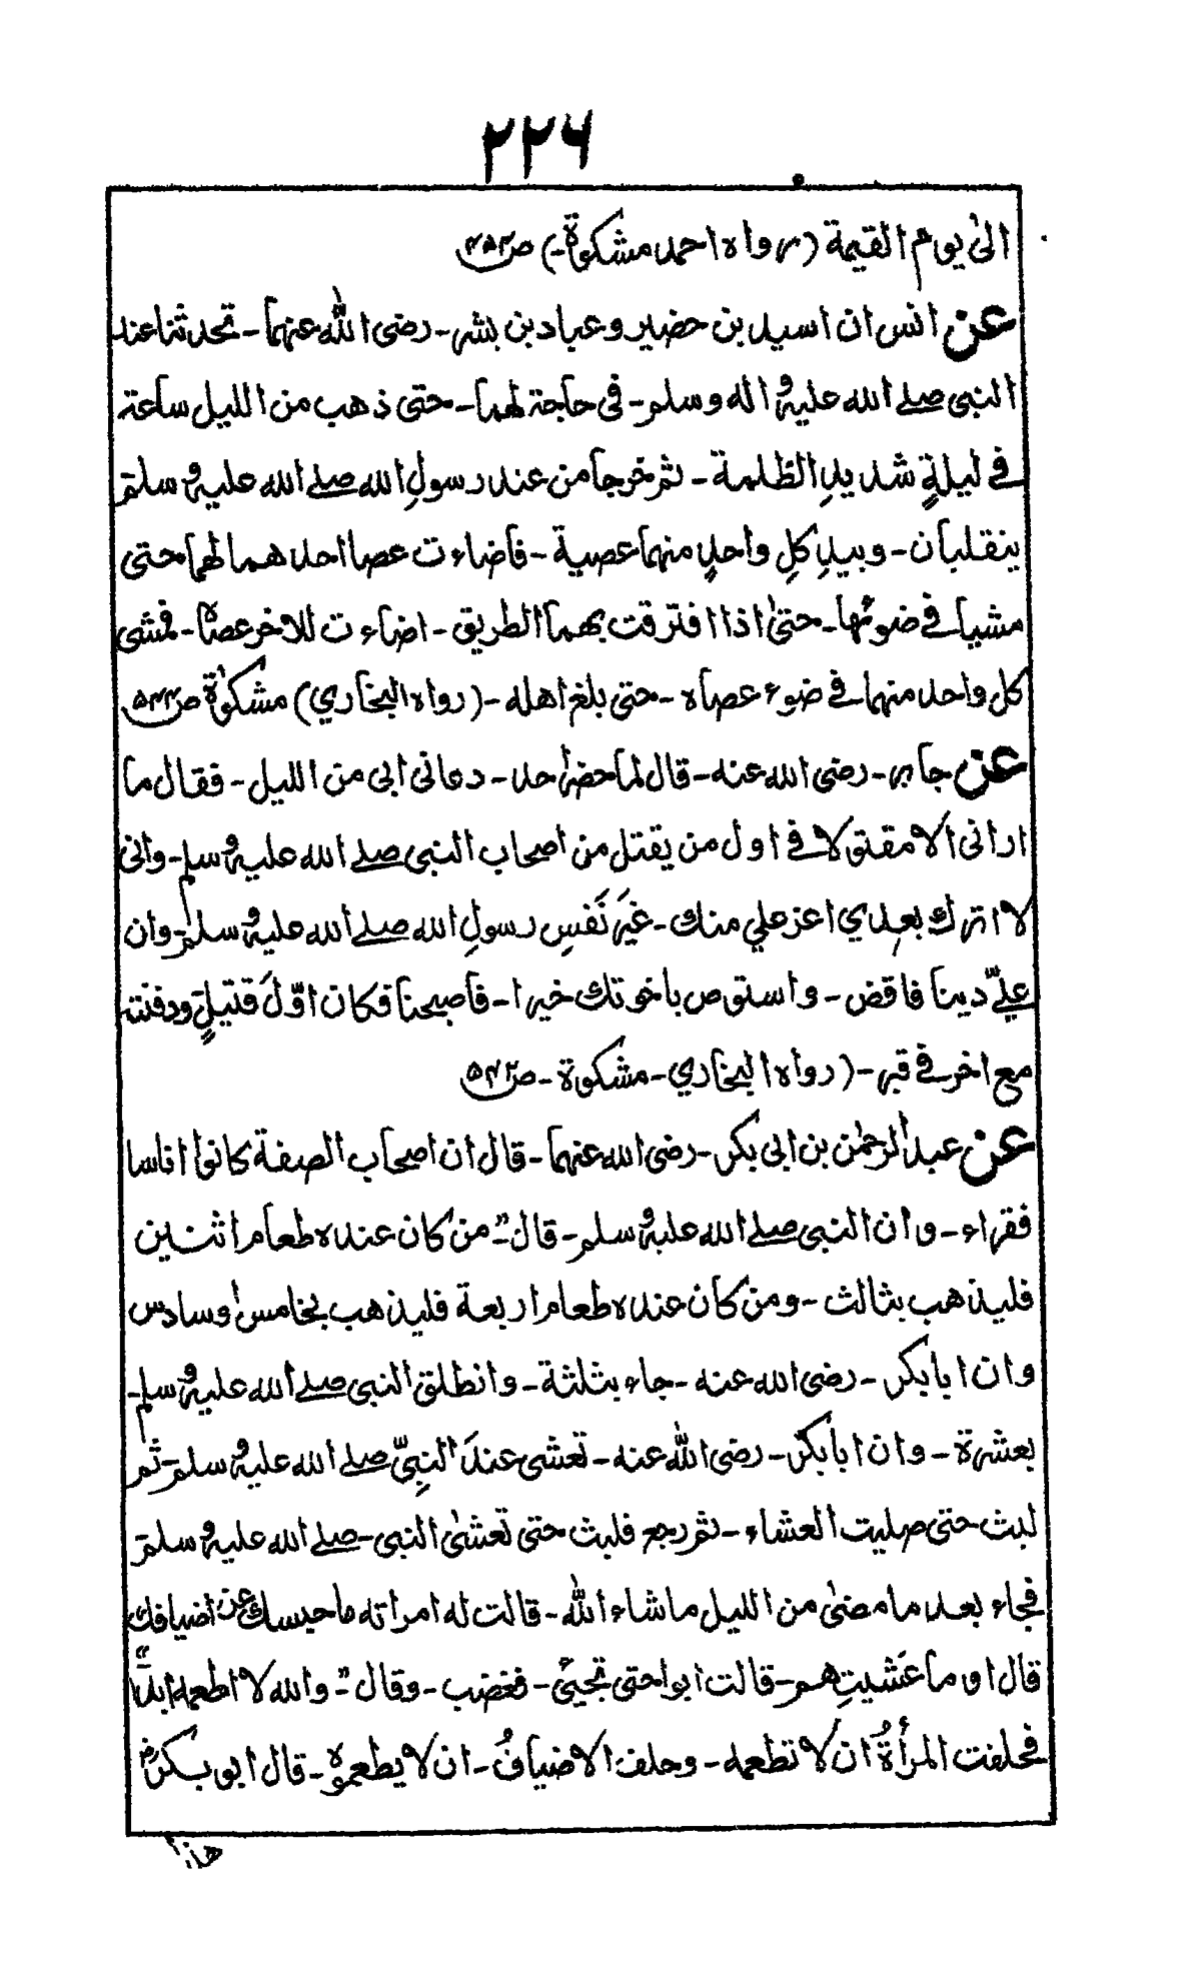 ۲۲۶
الیٰ یوم القیمة (رواه احمد مشکوة-) ص۴۵۳
عن انس ان اسید بن حضیر وعباد بن بشر- رضی الله عنهما- تحدثنا عند
النبی صلے الله علیه و اله وسلم- فی حاجة لهما- حتی ذهب من اللیل ساعة
فے لیلةٍ شدیدِ الظلمة- ثم خرجا من عند رسولِ الله صلے الله علیه و سلم
ینقلبان- وبیدِ کلِ واحدٍ منهما عصیة- فاضاءت عصا احدهما لهما حتی
مشیا فے ضوئها- حتیٰ اذا افترقت بهما الطریق- اضاءت للاخر عصاه- فمشی
کل واحد منهما فے ضوء عصاه- حتی بلغ اهله- (رواه البخاري) مشکوٰة ص۵۴۴
عن جابر- رضی الله عنه- قال لما حضر احد- دعانی ابی من اللیل- فقال ما
ارانی الا مقتولا فے اول من یقتل من اصحاب النبی صلے الله علیه و سلم- وانی
لا اترك بعدي اعز علي منك- غیرَ نَفسِ رسولِ الله صلے الله علیه و سلم- وان
علیّ دینا فاقض- واستوص باخوتك خیرا- فاصبحنا فکان اوّلَ قتیلٍ ودفنته
مع اخر فے قبر- (رواه البخاري- مشکوة- ص۵۴۲
عن عبد الرحمٰن بن ابی بکر- رضی الله عنهما- قال ان اصحاب الصفة کانوا اناسا
فقراء- وان النبی صلے الله علیه و سلم- قال:" من کان عنده طعام اثنین
فلیذهب بثالث- ومن کان عنده طعام اربعة فلیذهب بخامس او سادس
وان ابا بکر- رضی الله عنه- جاء بثلثة- وانطلق النبی صلے الله علیه و سلم-
بعشرة- وان ابا بکر- رضی الله عنه- تعشی عندَ النبِيّ صلے الله علیه و سلم- ثم
لبث حتی صلیت العشاء- ثم رجع فلبث حتی تعشیٰ النبی- صلے الله علیه و سلم
فجاء بعد ما مضیٰ من اللیل ما شاء الله- قالت له امراته ما حبسك عن اضیافك
قال او ما عَشیتِهم- قالت ابوا حتی تجیئ- فغضب- وقال:" والله لا اطعمه ابدًا"
فحلفت المرأةُ ان لا تطعمه- وحلف الاضیافُ- ان لا یطعموه- قال ابو بکرؓ
هذا